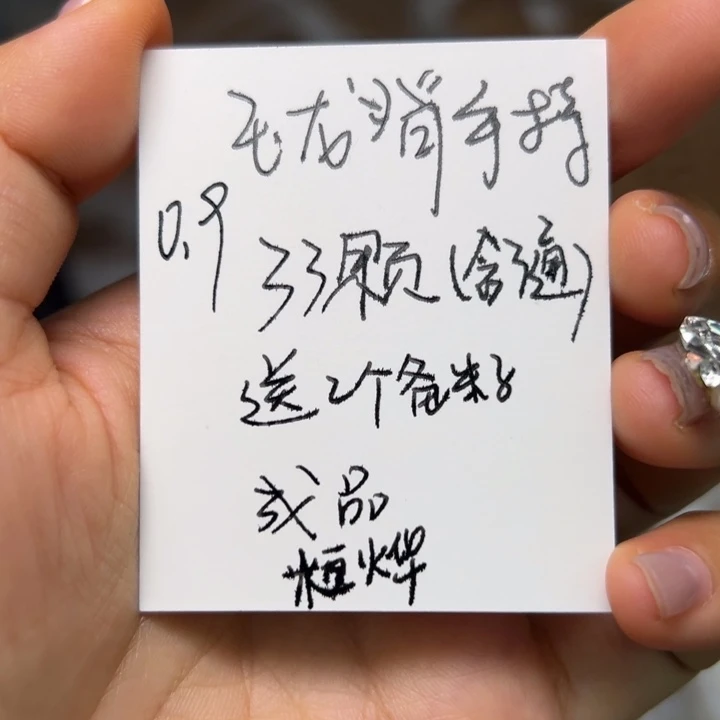 无龙背手持
0.9
33颗(含3通)
送2个备料
成品
桓烨